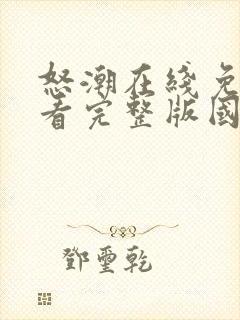 怒潮在线免
看完整版國
鄧璽乾